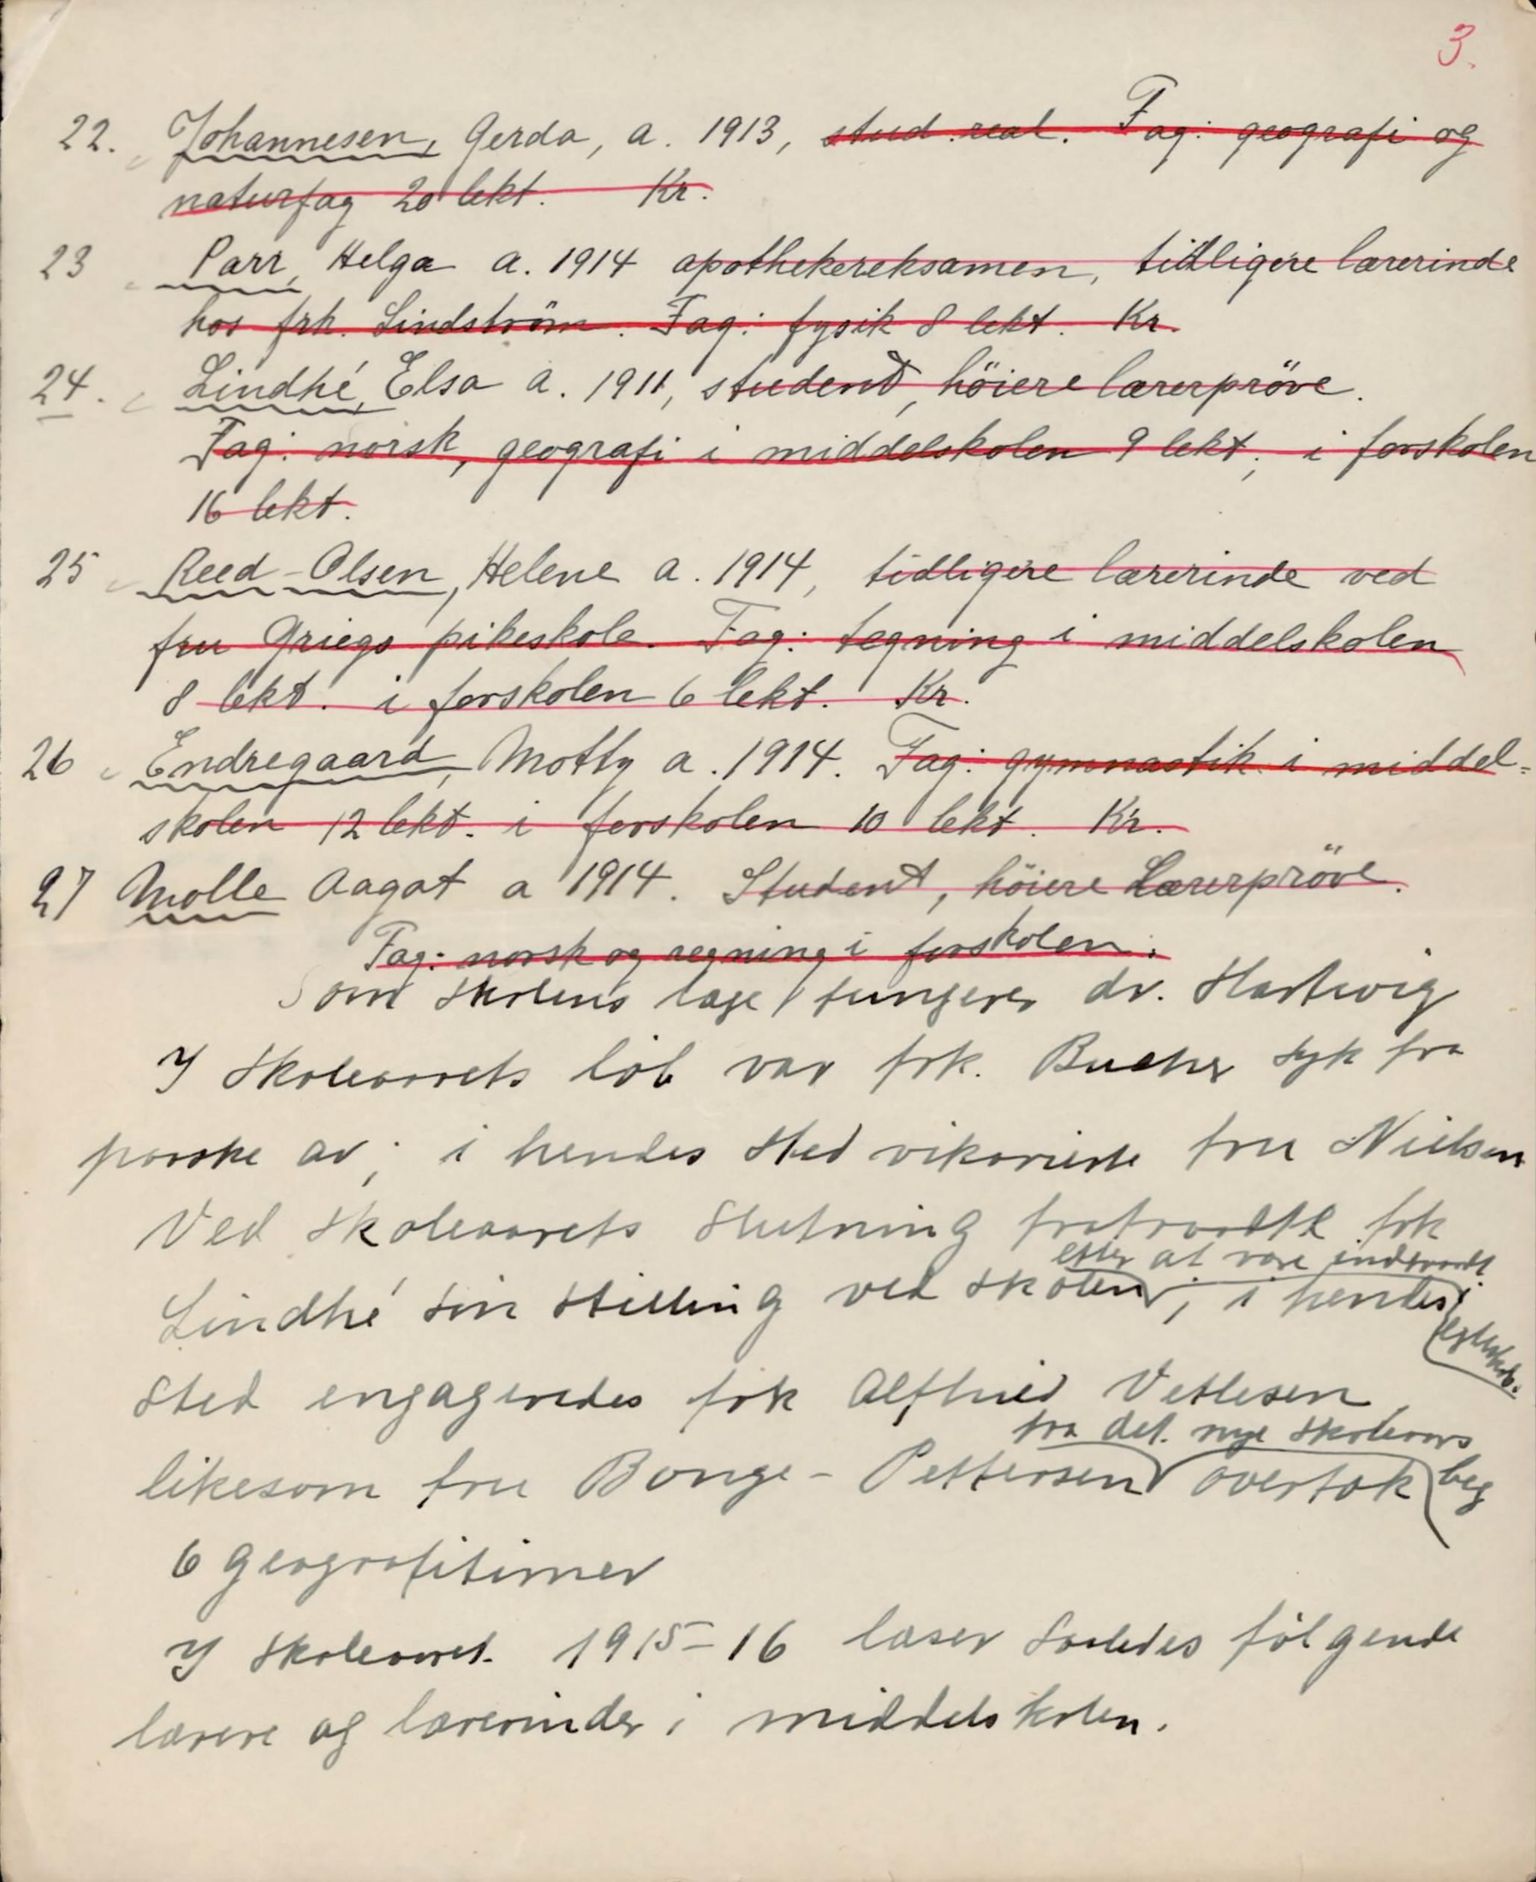 3.
22. Johannesen, Gerda, a. 1913, stud. real. Fag: geografi og
naturfag 20 lekt. Kr.
23 Parr, Helga a. 1914 apothekereksamen, tidligere lærerinde
hos frk. Lindström. Fag: fysik 8 lekt. Kr.
24. Lindhé, Elsa a. 1911, student, höiere lærerpröve.
Fag: norsk, geografi i middelskolen 9 lekt, i forskolen
16 lekt.
25 Reed-Olsen, Helene a. 1914, tidligere lærerinde ved
fru Griegs pikeskole. Fag: tegning i middelskolen
8 lekt. i forskolen 6 lekt. Kr.
26 Endregaard, Motty a. 1914. Fag: gymnastik i middel=
skolen 12 lekt. i forskolen 10 lekt. Kr.
27 Molle Aagot a 1914. Student, höiere Lærerpröve.
Fag: norsk og regning i forskolen.
Som skolens læge fungerer dr. Hartwig
I skoleaarets löb var frk. Bucher syk fra
paaske av; i hendes sted vikarierte fru Nielsen
Ved skoleaarets slutning fratraadte frk
efter at være indtraadt i
Lindhé sin stilling ved skolen, i hendes
egteskab.
sted engageredes frk Alfhild Vetlesen,
fra det nye skoleaars
likesom fru Bonge-Pettersen overtok beg
6 geografitimer
I skoleaaret 1915-16 læser saaledes fölgende
lærere og lærerinder i middelskolen.